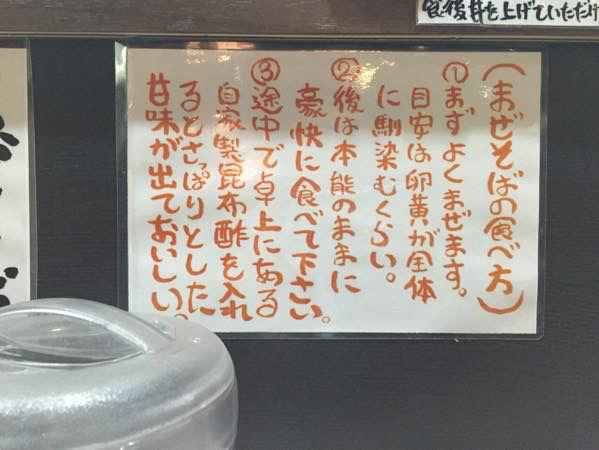 食後丼を上げていただけ
(まぜそばの食べ方)
①まずよくまぜます。
目安は卵黄が全体
に馴染むくらい。
②後は本能のままに
豪快に食べて下さい。
③途中で卓上にある
自家製昆布酢を入れ
るとさっぱりとした
甘味が出ておいしい。